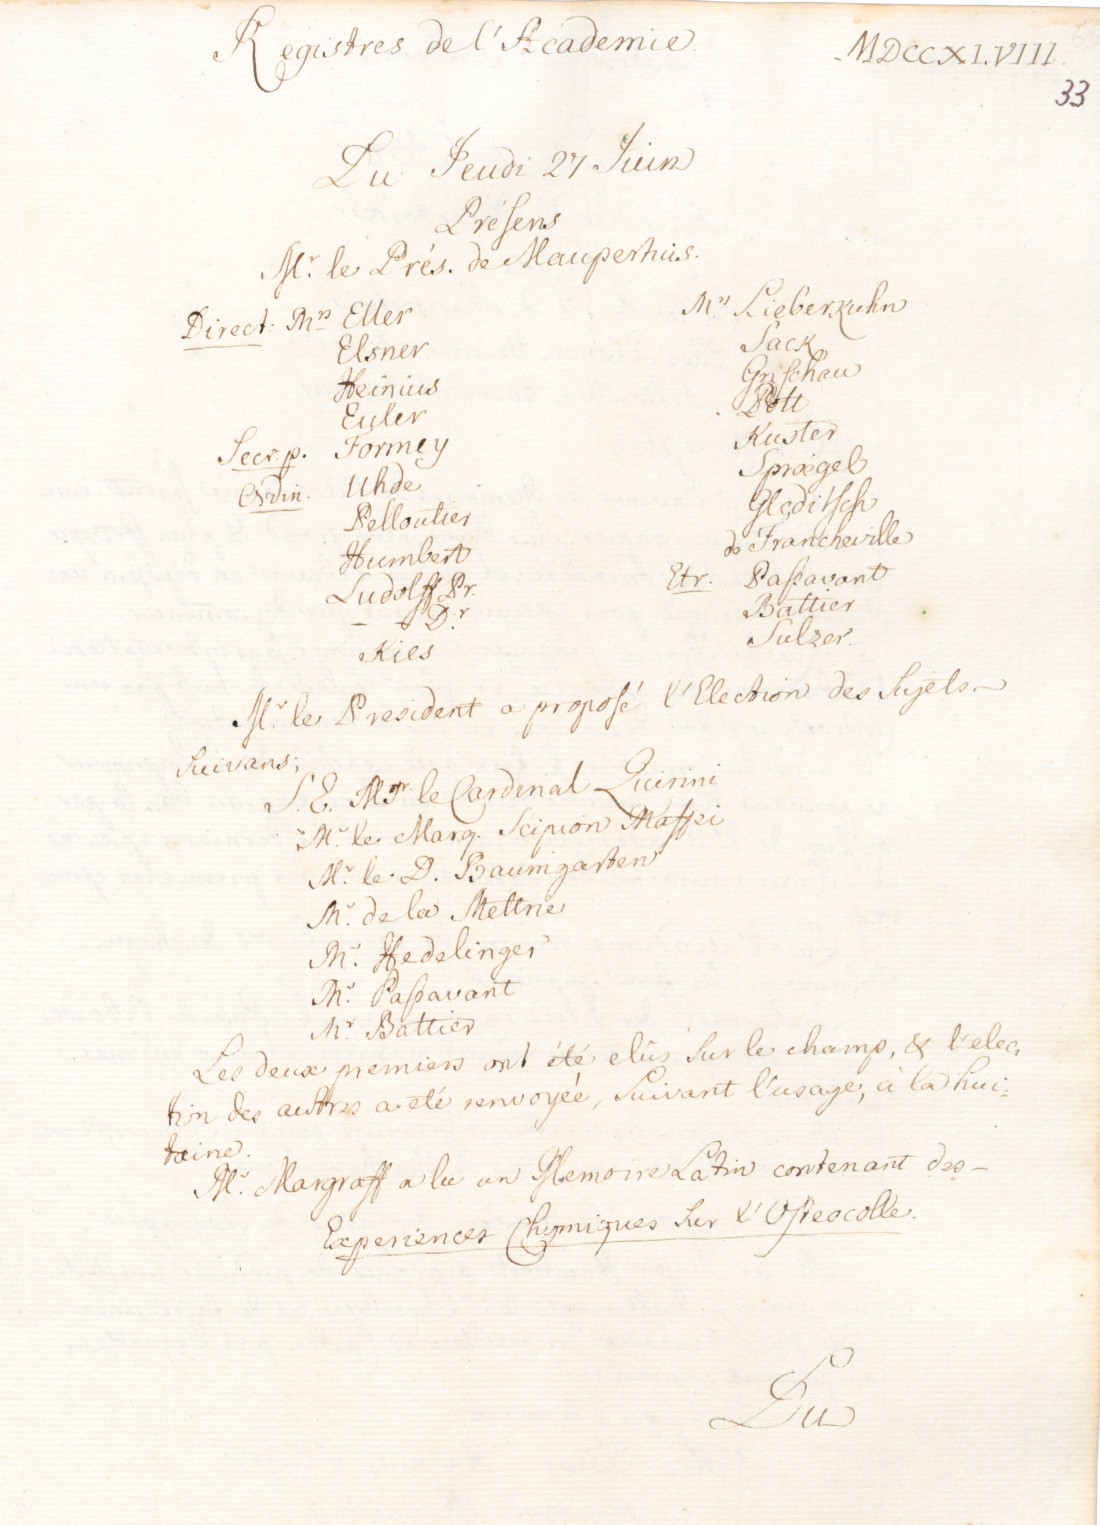 Registres de l'Academie.
MDCCXLVIII.
33
Du Jeudi 27 Juin
Présens
Mr. le Prés. de Maupertuis.
Direct: Mrs Eller
Elsner
Heinius
Euler
Secr. p. Formey
Ordin. Uhde
Pelloutier
Humbert
Ludolff Pr.
- - Dr
Kies
Mrs Lieberkuhn
Sack
Grischau
Pott
Kuster
Sprœgel
Gleditsch
de Francheville
Etr. Passavant
Battier
Sulzer.
Mr. le President a proposé l'Election des Sujets
suivans;
S. E. Mgr. le Cardinal Quirini
Mr. le Marq. Scipion Maffei
Mr. le D. Baumgarten
Mr. de la Mettrie
Mr. Hedelinger
Mr. Passavant
Mr Battier
Les deux premiers ont été elûs sur le champ, & l'elec-
tion des autres a été renvoyée, suivant l'usage, à la hui-
taine.
Mr. Margraff a lu un Memoire Latin contenant des
Experiences Chymiques sur l'Osteocolle.
Du